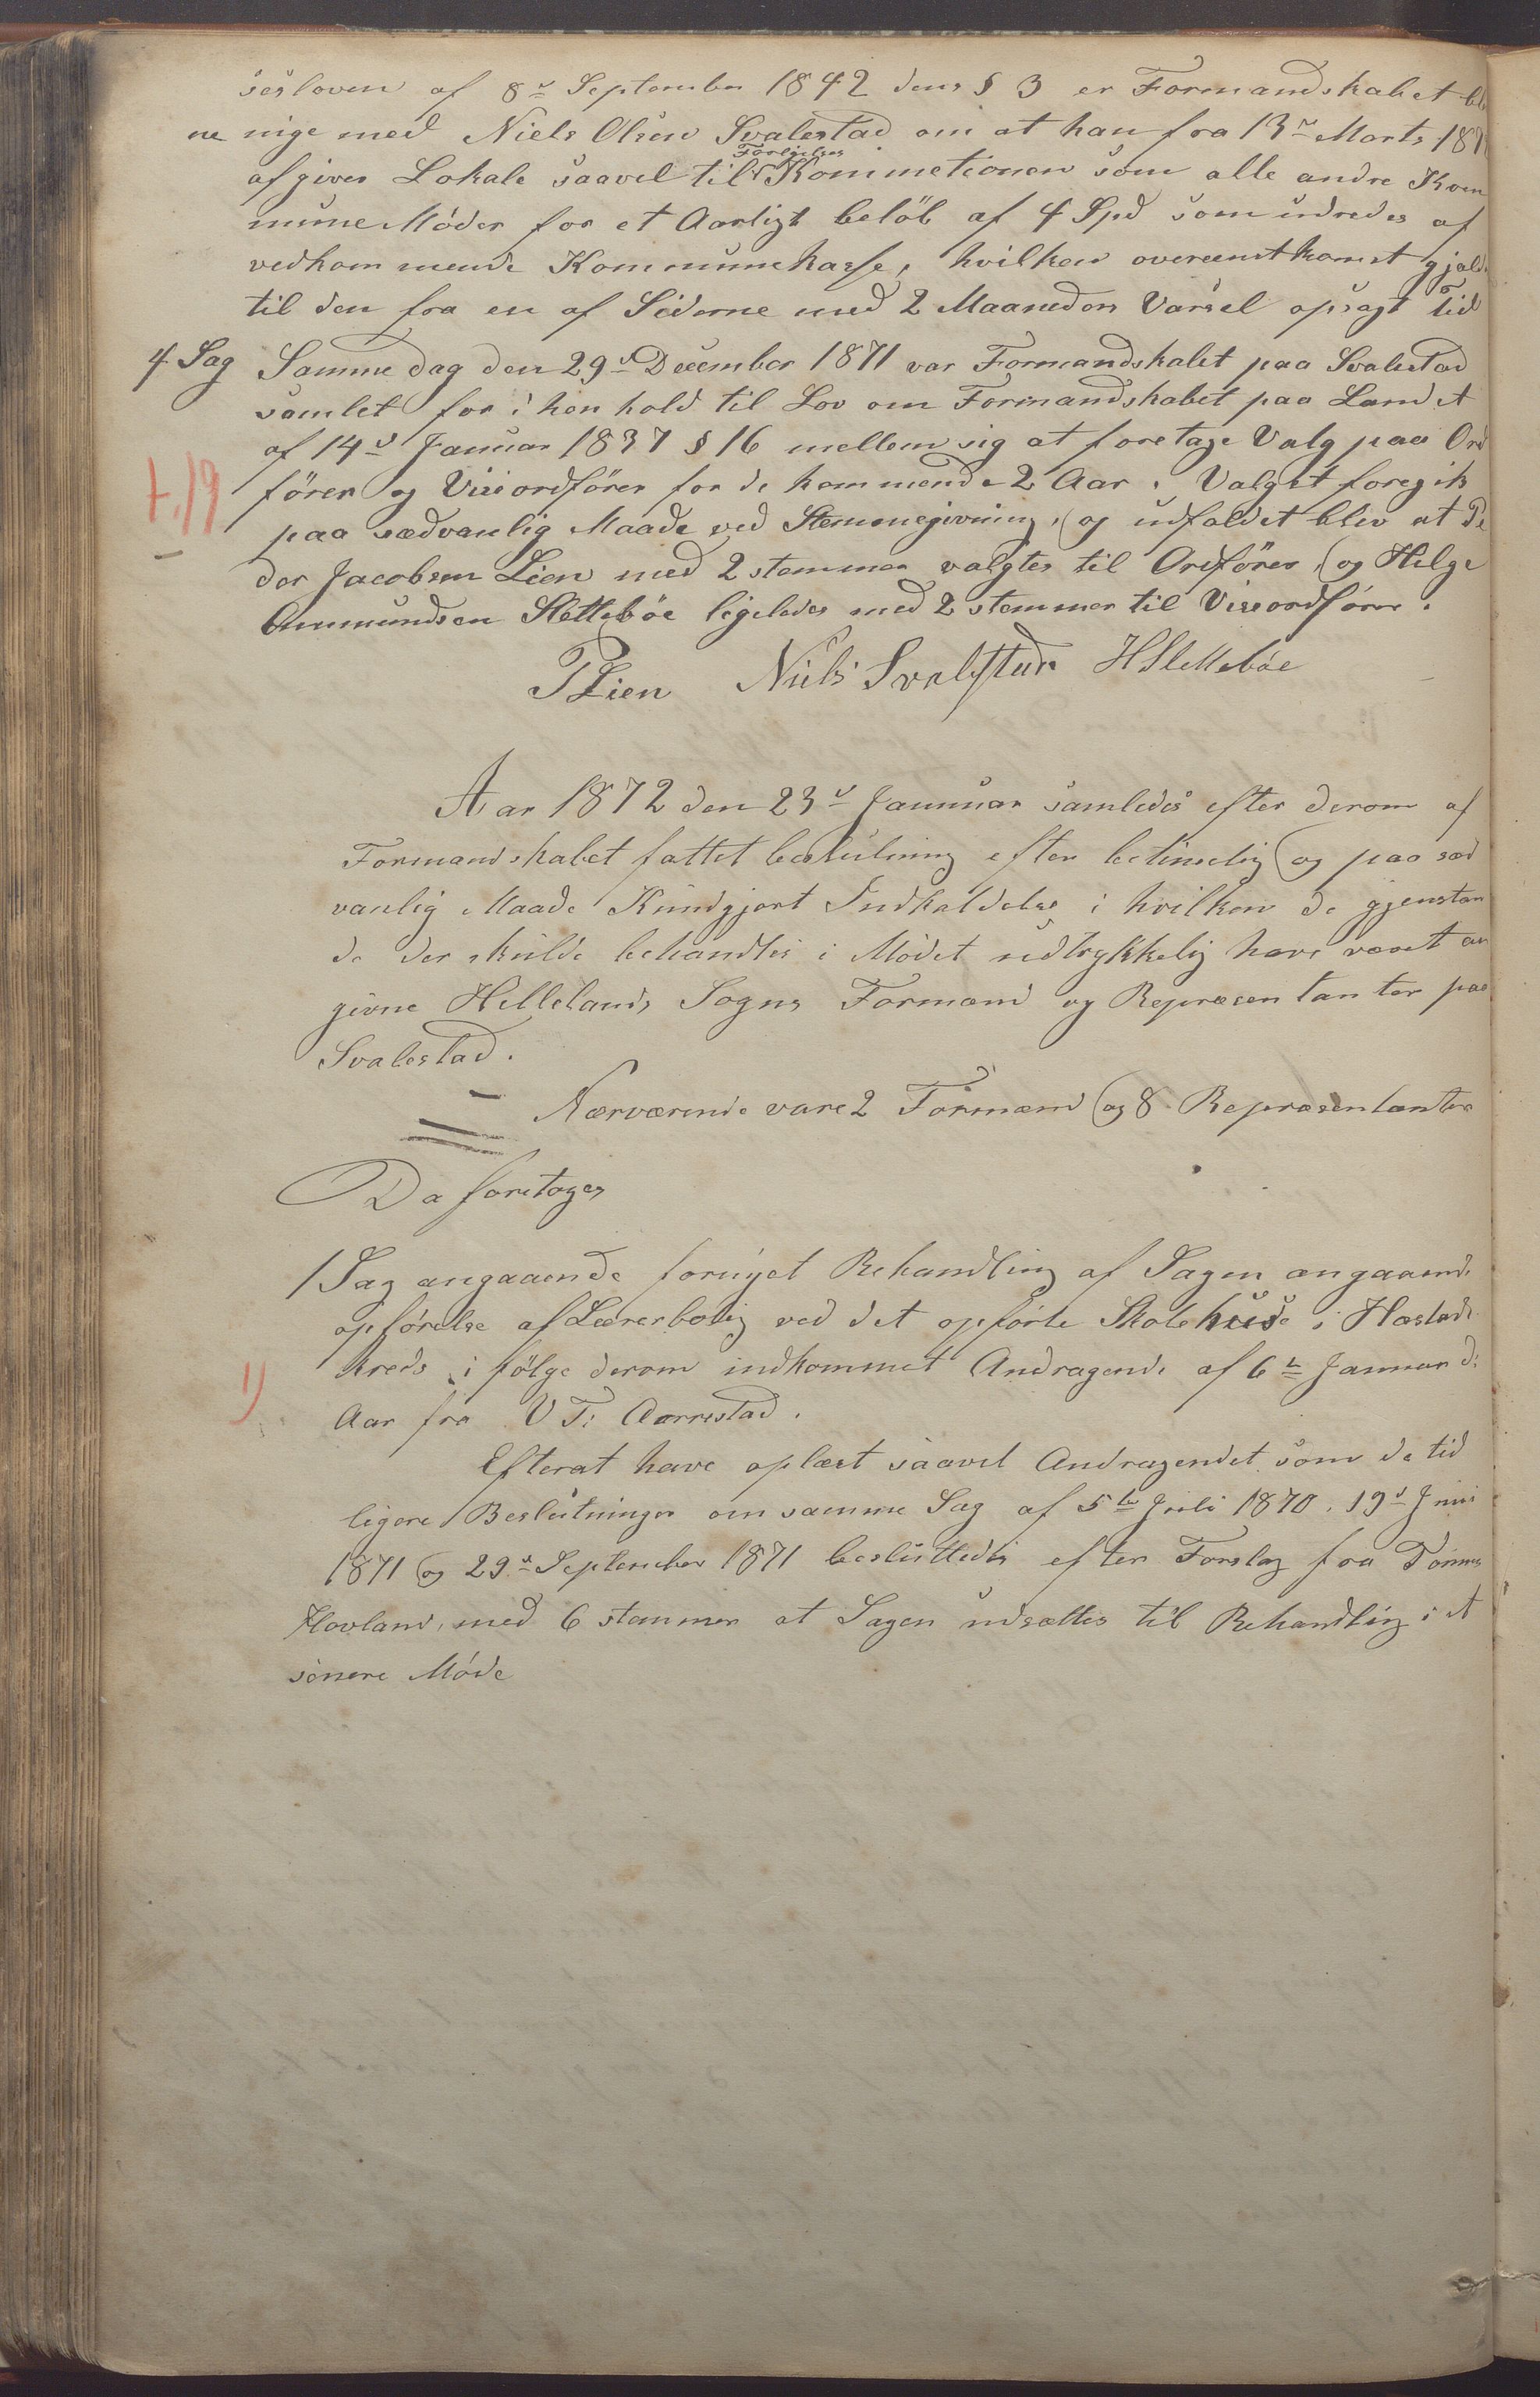 sesloven af 8de September 1842 dens § 3 er Formandskabet ble
ne nige med Niels Olsen Svalestad om at han fra 13de Marts 187
Forligelses
afgiver Lokale saavel til Kommetionen som alle andre Kom
mune Møder for et Aarligt beløb af 4 Spd som udredes af
vedkommende Kommunekasse, hvilken overeenstkomst gjælde
til den fra en af Siderne med 2 Maaneders Varsel opsagt Tid
4 Sag Samme dag den 29de December 1871 var Formandskabet paa Svalestad
samlet for i hen hold til Lov om Formandskabet paa Landet
af 14de Januar 1837 § 16 mellem sig at foretage Valg paa Ord
t.19 fører og Viseordfører for de kommende 2 Aar. Valget foregik
paa sædvanlig Maade ved Stemmegivning, og udfaldet blev at Pe
der Jacobsen Lien med 2 stemmer valgtes til Ordfører, og Helge
Ommundsen Slettebøe ligeledes med 2 stemmer til Viseordfører.
PLien Niels Svalestad HSlettebøe
Aar 1872 den 23de Januuar samledes efter derom af
Formandskabet fattet beslutning efter betimelig og paa sæd
vanlig Maade Kundgjort Indkaldelse i hvilken de gjenstan
de der skulde behandles i Mødet udtrykkelig have været an
givne Hellelands Sogns Formænd og Repræsentanter paa
Svalestad.
Nærværende vare 2 Formænd og 8 Repræsentanter
Da foretoges
1 Sag angaaende fornyet Behandling af Sagen angaaende
opførelse af Lærerbolig ved det opførte Skolehuse i Hæstads
kreds i følge derom indkommet Andragende af 6te Januar d:
1) Aar fra V T: Aarrestad.
Efterat have oplæst saavel Andragendet som de tid
ligere Beslutninger om samme Sag af 5te Juli 1870, 19de Juni
1871 og 29de September 1871 besluttedes efter Forslag fra Tønnes
Hovland, med 6 stemmer at Sagen udsættes til Behandling i et
senere Møde